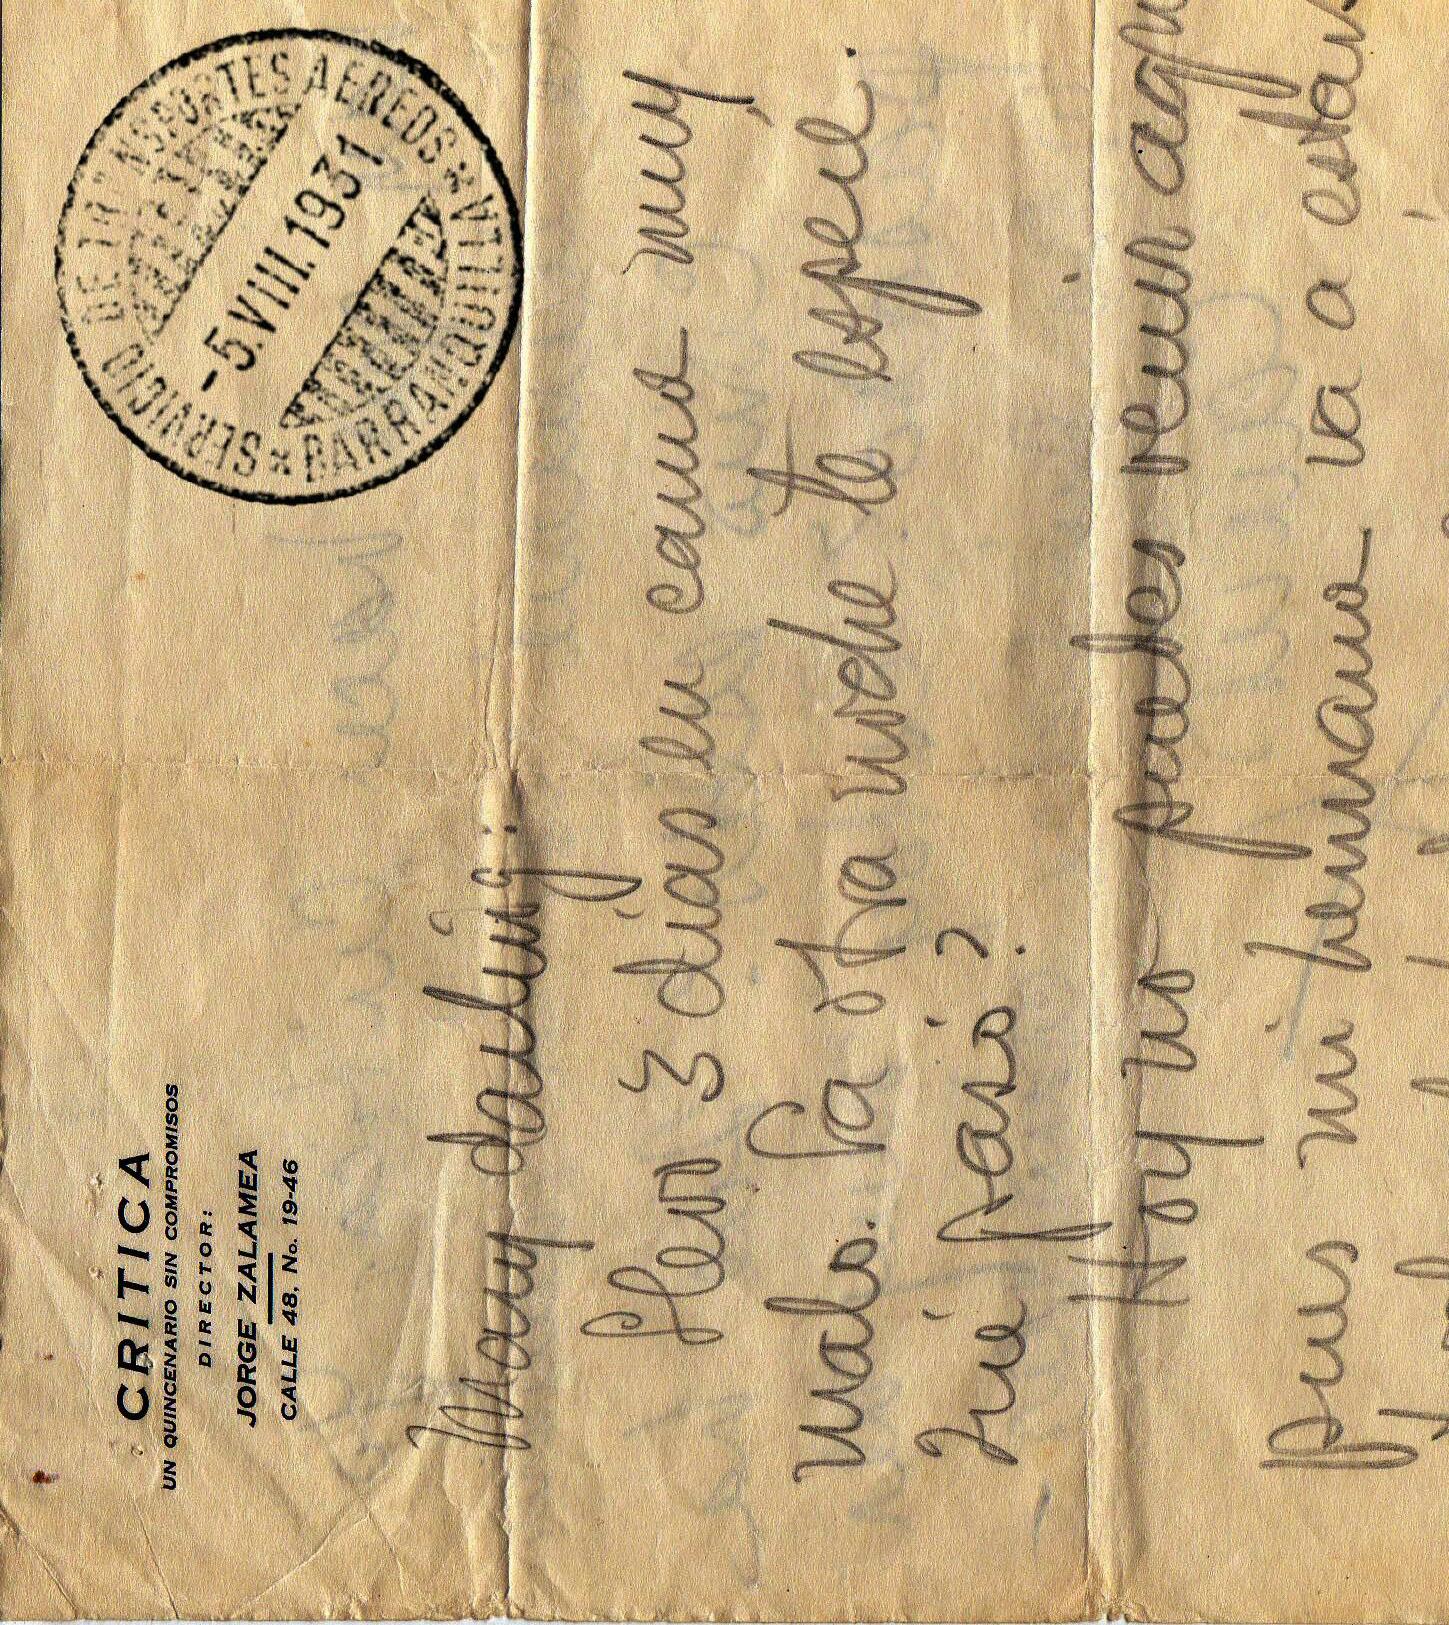 CRITICA
UN QUINCENARIO SIN COMPROMISOS
DIRECTOR:
JORGE ZALAMEA
CALLE 48, No. 19-46
SERVICIO DE TRANSPORTES AEREOS
-5.VIII.1931
BARRANQUILLA
Mary darling:
Llevo 3 dias en cama muy
malo. La otra noche te esperé.
Qué pasó?
Hoy no puedes venir aqu
pues mi hermano va a estar